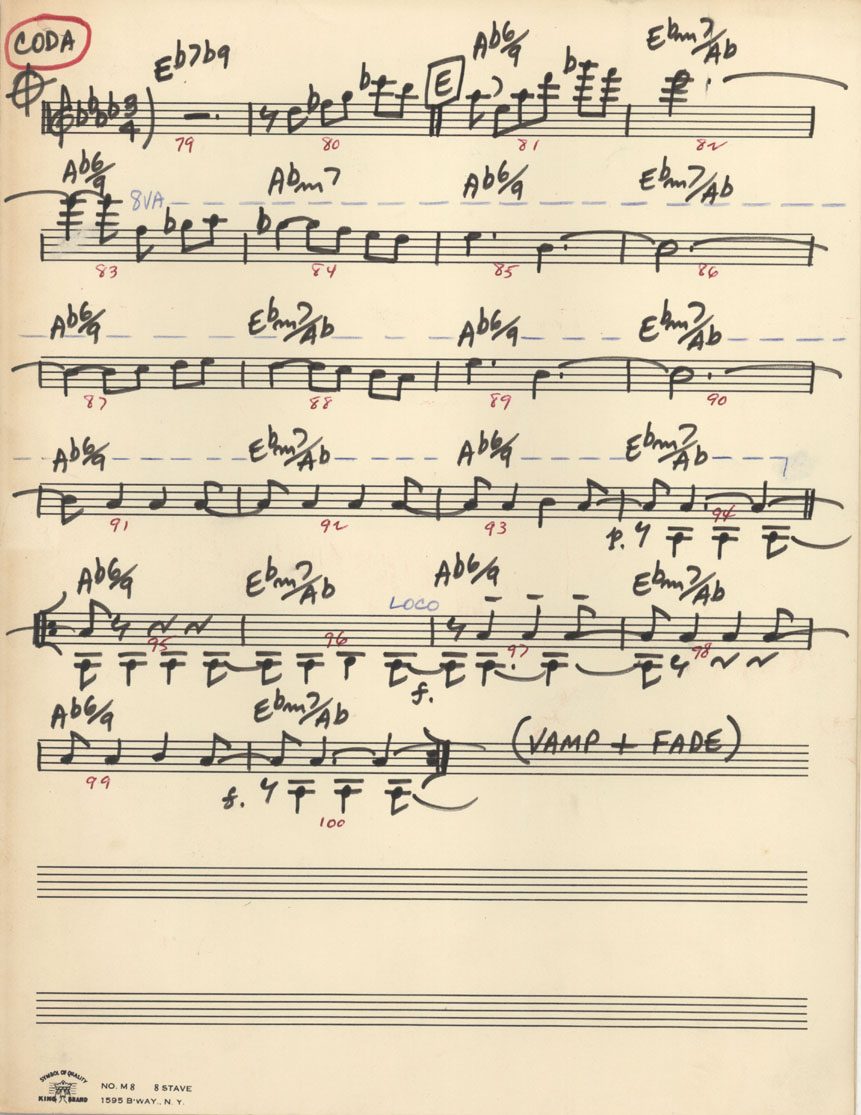 CODA
Eb7b9 E Ab6/9 Ebm7/Ab
3
4
79 80 81 82
Ab6/9 8VA Abm7 Ab6/9 Ebm7/Ab
83 84 85 86
Ab6/9 Ebm7/Ab Ab6/9 Ebm7/Ab
87 88 89 90
Ab6/9 Ebm7/Ab Ab6/9 Ebm7/Ab
91 92 93 94
p.
Ab6/9 Ebm7/Ab LOCO Ab6/9 Ebm7/Ab
95 96 97 98
f.
Ab6/9 Ebm7/Ab (VAMP + FADE)
99 100
f.
SYMBOL OF QUALITY
KING BRAND
NO. M 8 8 STAVE
1595 B'WAY., N. Y.